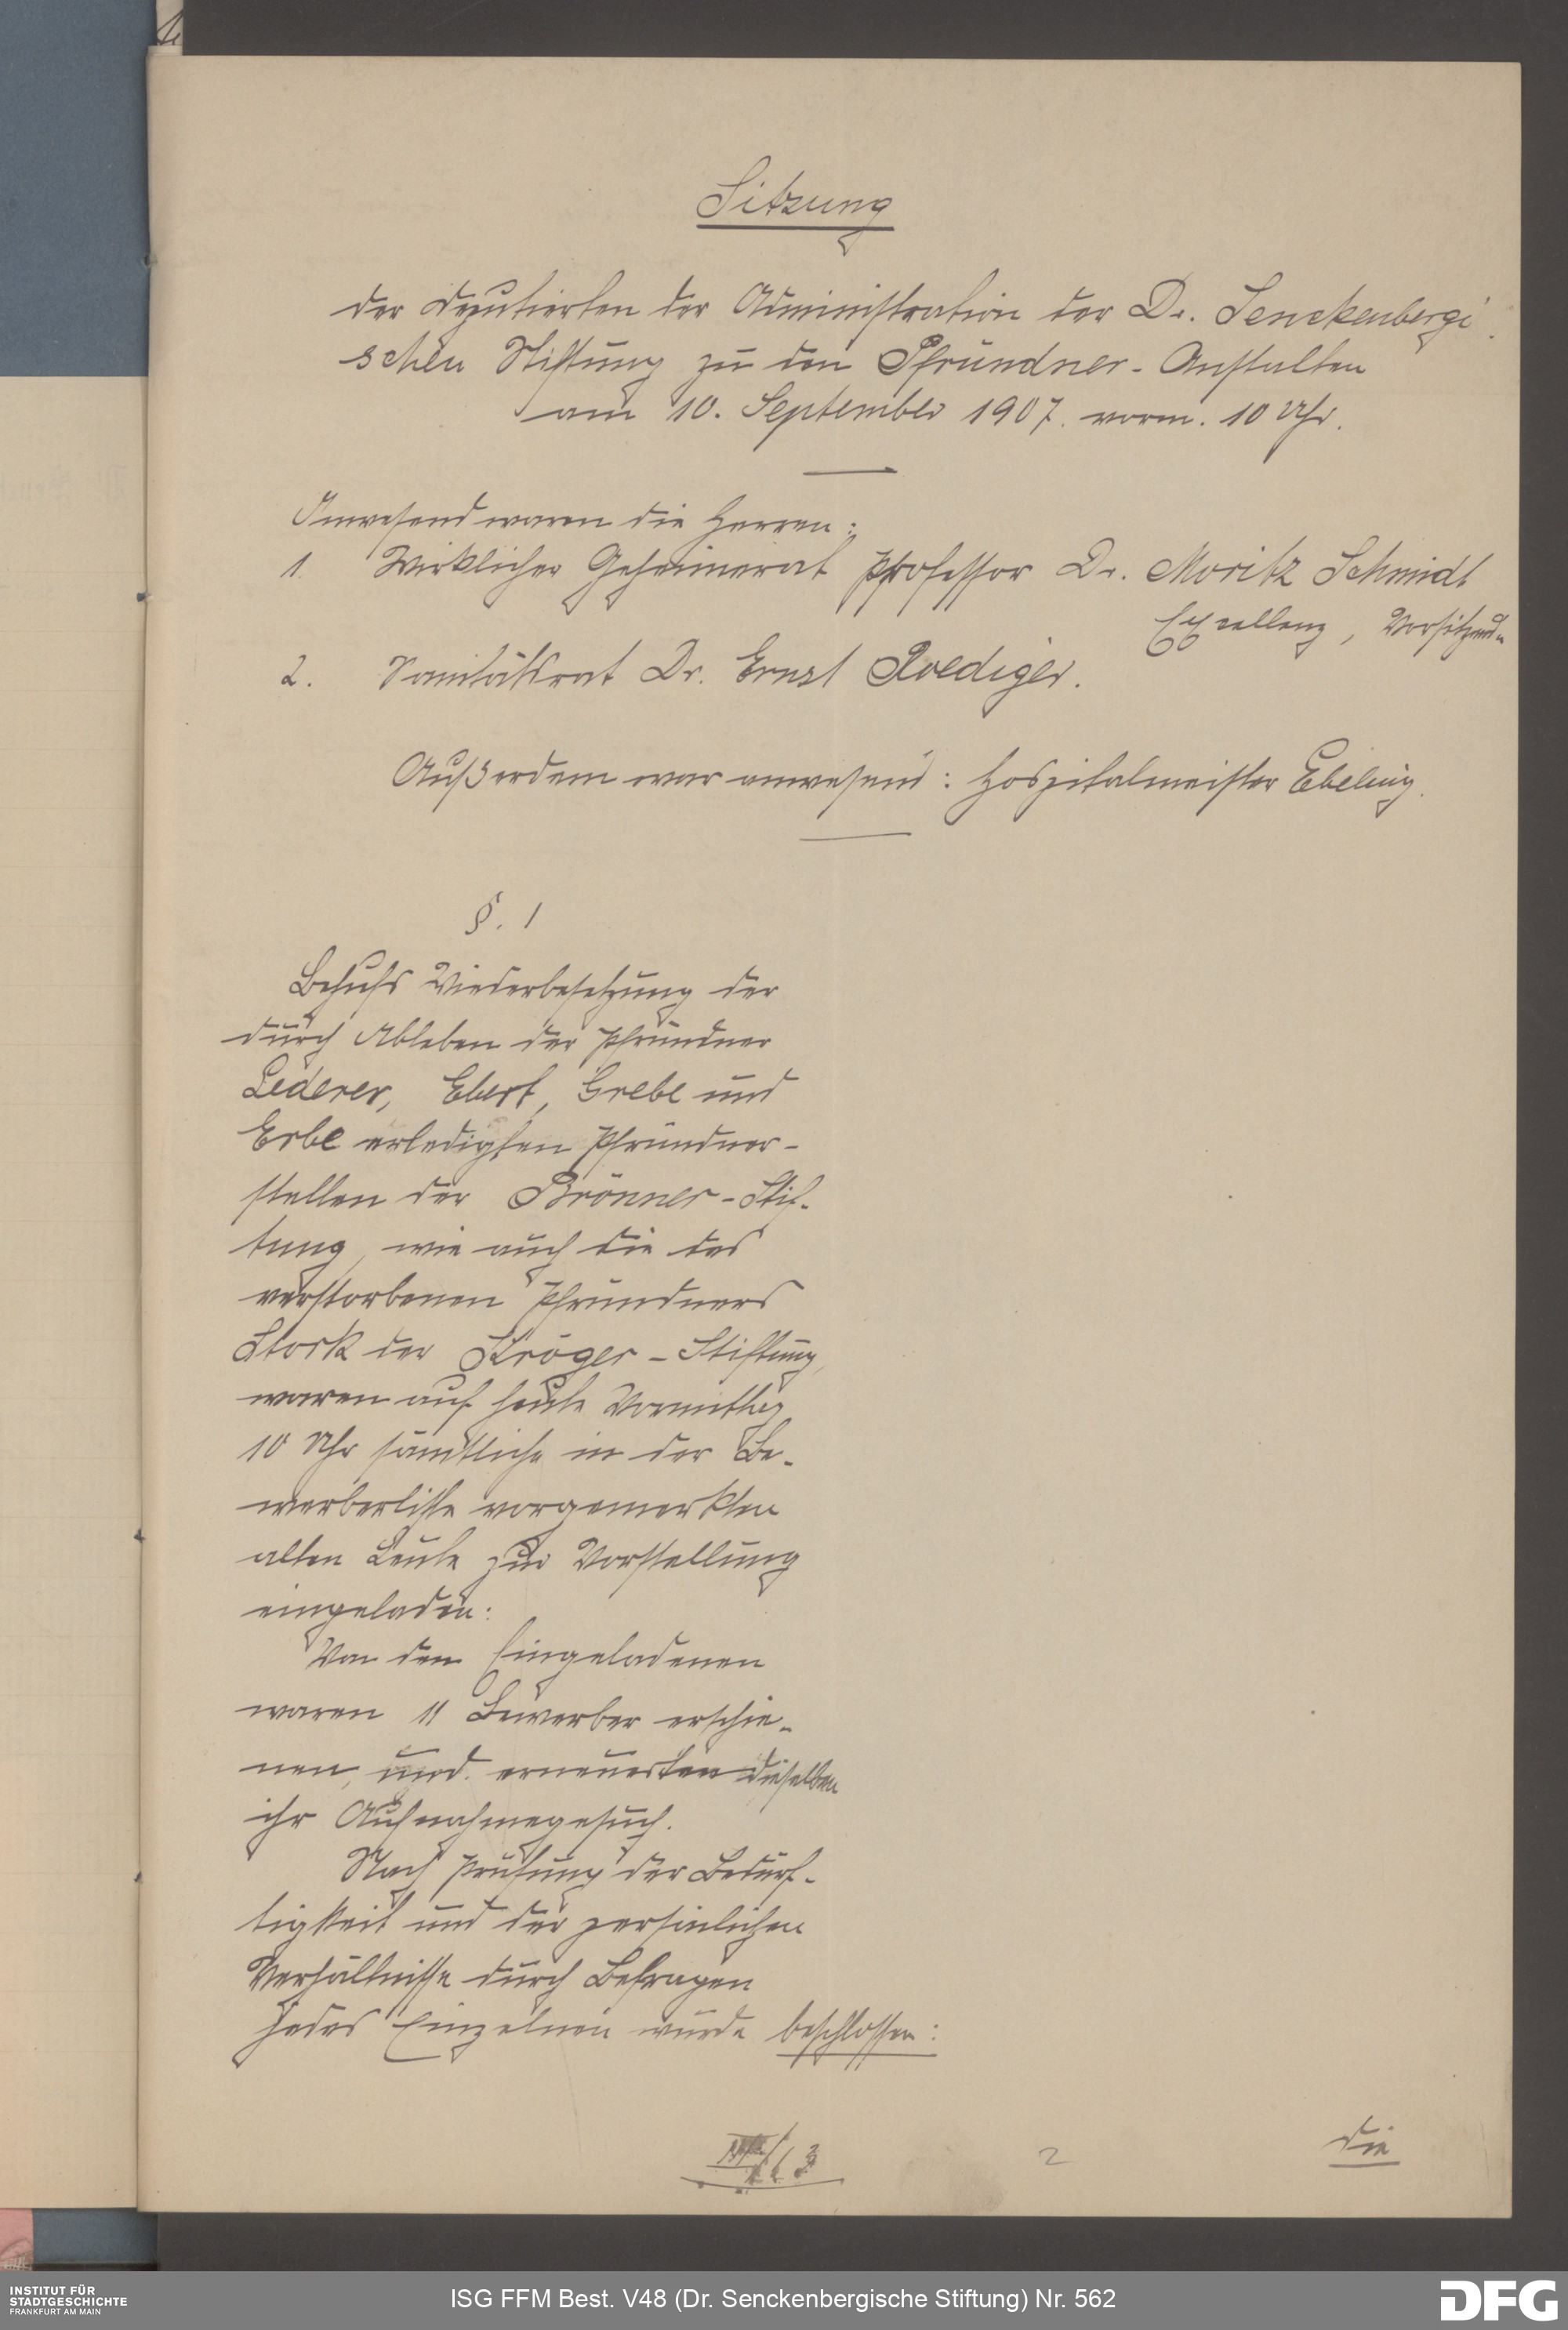 Sitzung
der Deputierten der Administration der Dr. Senckenbergi
schen Stiftung zu den Pfründner-Anstalten
am 10. September 1907. vorm. 10 Uhr.
Anwesend waren die Herren:
1. Wirklicher Geheimerat Professor Dr. Moritz Schmidt
Exzellenz, Vorsitzender
2. Sanitätsrat Dr. Ernst Roediger.
Außerdem war anwesend: Hospitalmeister Ebeling.
§. 1
Behufs Wiederbesetzung der
durch Ableben der Pfründner
Lederer, Ebert, Grebe und
Erbe erledigten Pfründner-
stellen der Brönner-Stif-
tung, wie auch die des
verstorbenen Pfründners
Stork der Kröger-Stiftung,
waren auf heute Vormittag
10 Uhr sämtliche in der Be-
werberliste vorgemerkten
alten Leute zur Vorstellung
eingeladen:
Von den Eingeladenen
waren 11 Bewerber erschie-
nen, und erneuerten dieselben
ihr Aufnahmegesuch.
Nach Prüfung der Bedürf-
tigkeit und der persönlichen
Verhältnisse durch Befragen
jedes Einzelnen wurde beschlossen:
2
die
INSTITUT FÜR
STADTGESCHICHTE
FRANKFURT AM MAIN
ISG FFM Best. V48 (Dr. Senckenbergische Stiftung) Nr. 562
DFG